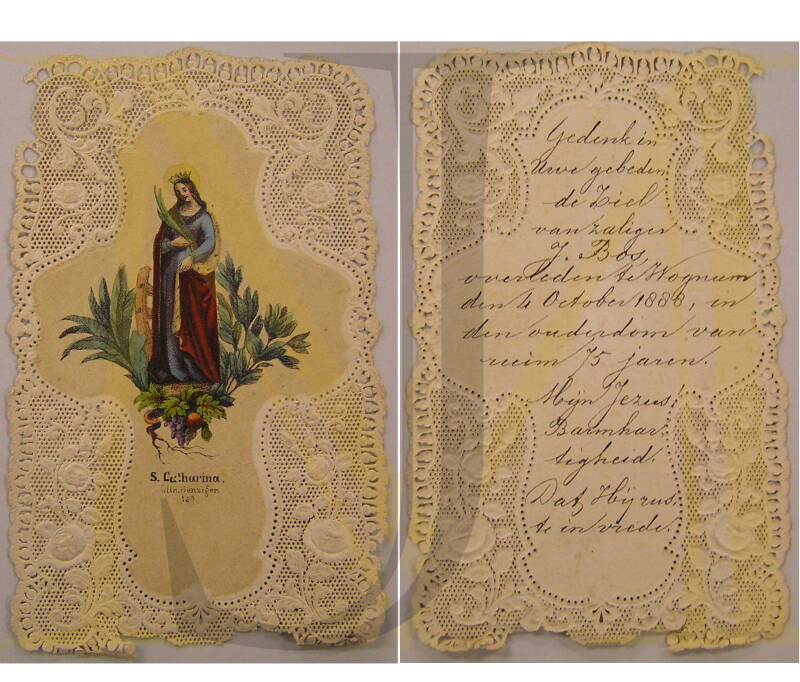 S. Catharina.
Gedenk in
Uwe gebeden
de Ziel
van zaliger
J. Bos,
overleden te Wognum
den 4 October 1888, in
den ouderdom van
ruim 75 jaren.
Mijn Jezus!
Barmhar-
tigheid.
Dat Hij rus-
te in vrede.